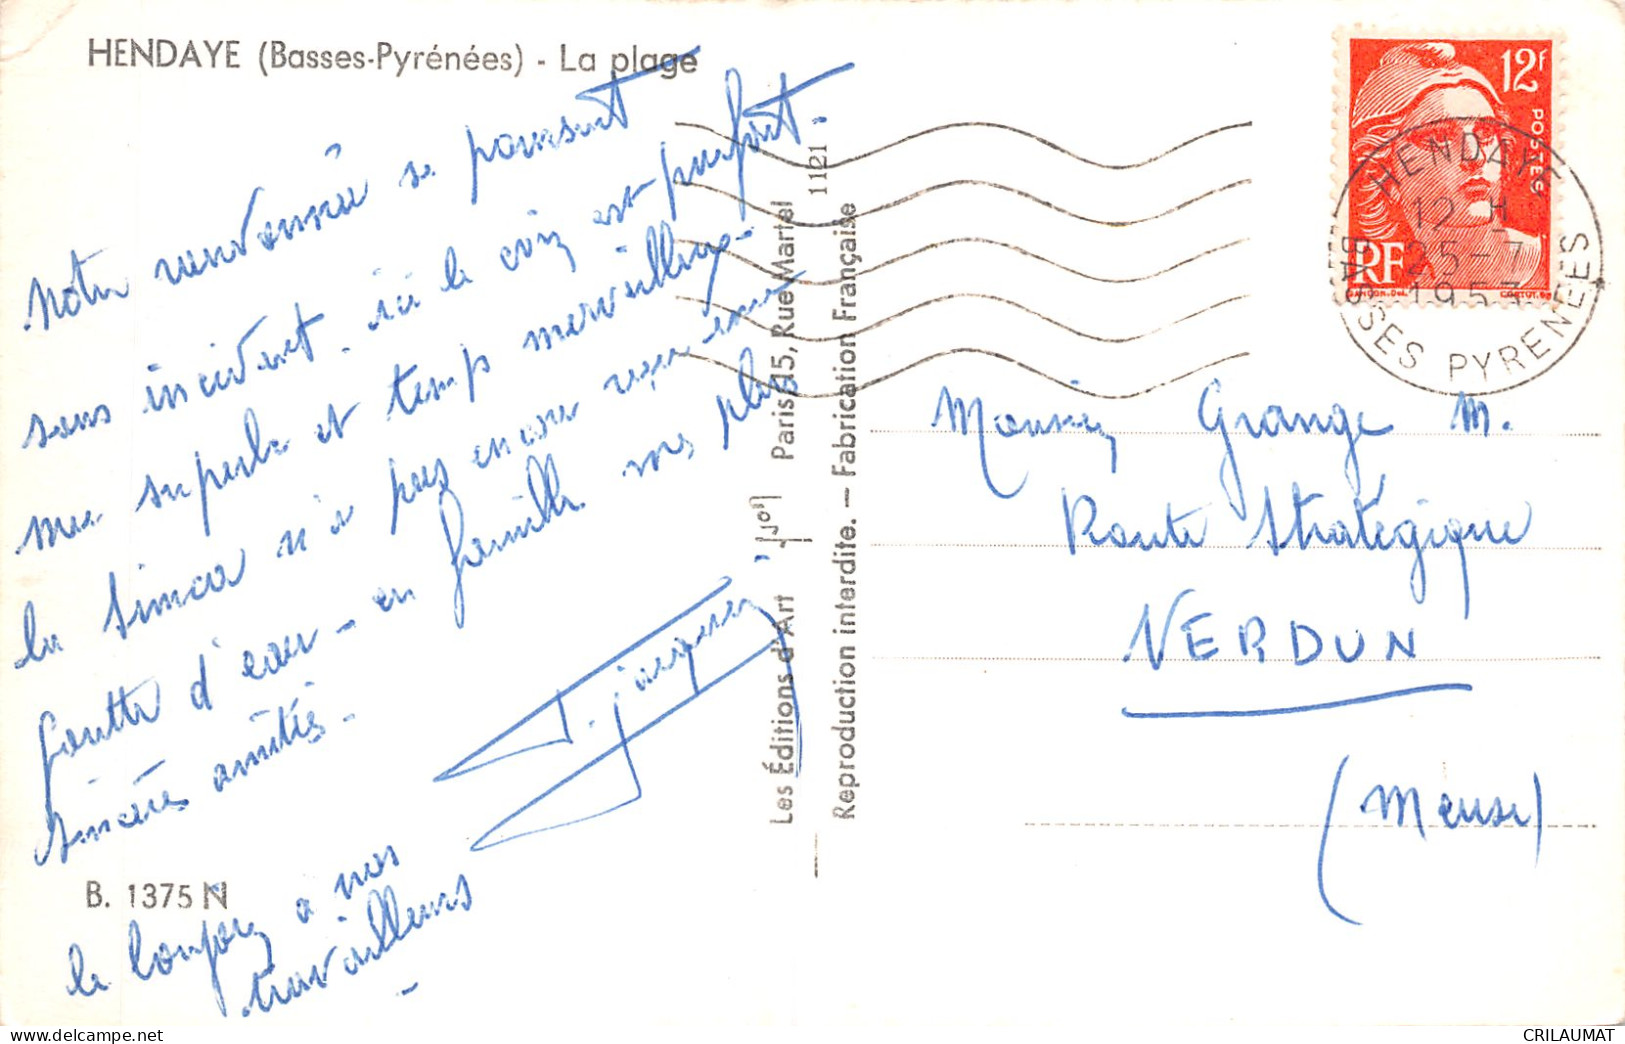 HENDAYE (Basses-Pyrénées) - La plage
Notre randonnée se poursuit
sans incident. ici le coin est parfait.
mer superbe et temps merveilleux.
la Simca n'a pas encore reçu une
goutte d'eau - en famille nos plus
sincères amitiés.
J. Jacques
B. 1375 N
le bonjour à nos
travailleurs
Les Éditions d'Art Yvon Paris 15, Rue Martel 1121
Reproduction interdite. - Fabrication Française
12F
POSTES
RF
GANDON.DEL.
CORTOT.SC
HENDAYE
12 H
25-7
1953
BASSES PYRENEES
Monsieur Grange M.
Route Stratégique
VERDUN
(Meuse)
www.delcampe.net
CRILAUMAT